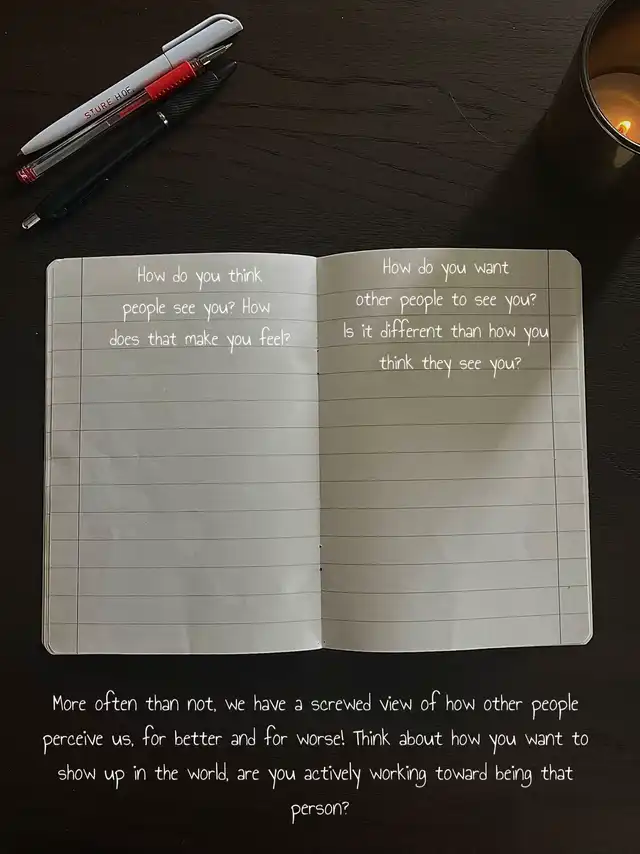 STURE HOF
How do you think
people see you? How
does that make you feel?
How do you want
other people to see you?
Is it different than how you
think they see you?
More often than not, we have a screwed view of how other people
perceive us, for better and for worse! Think about how you want to
show up in the world, are you actively working toward being that
person?